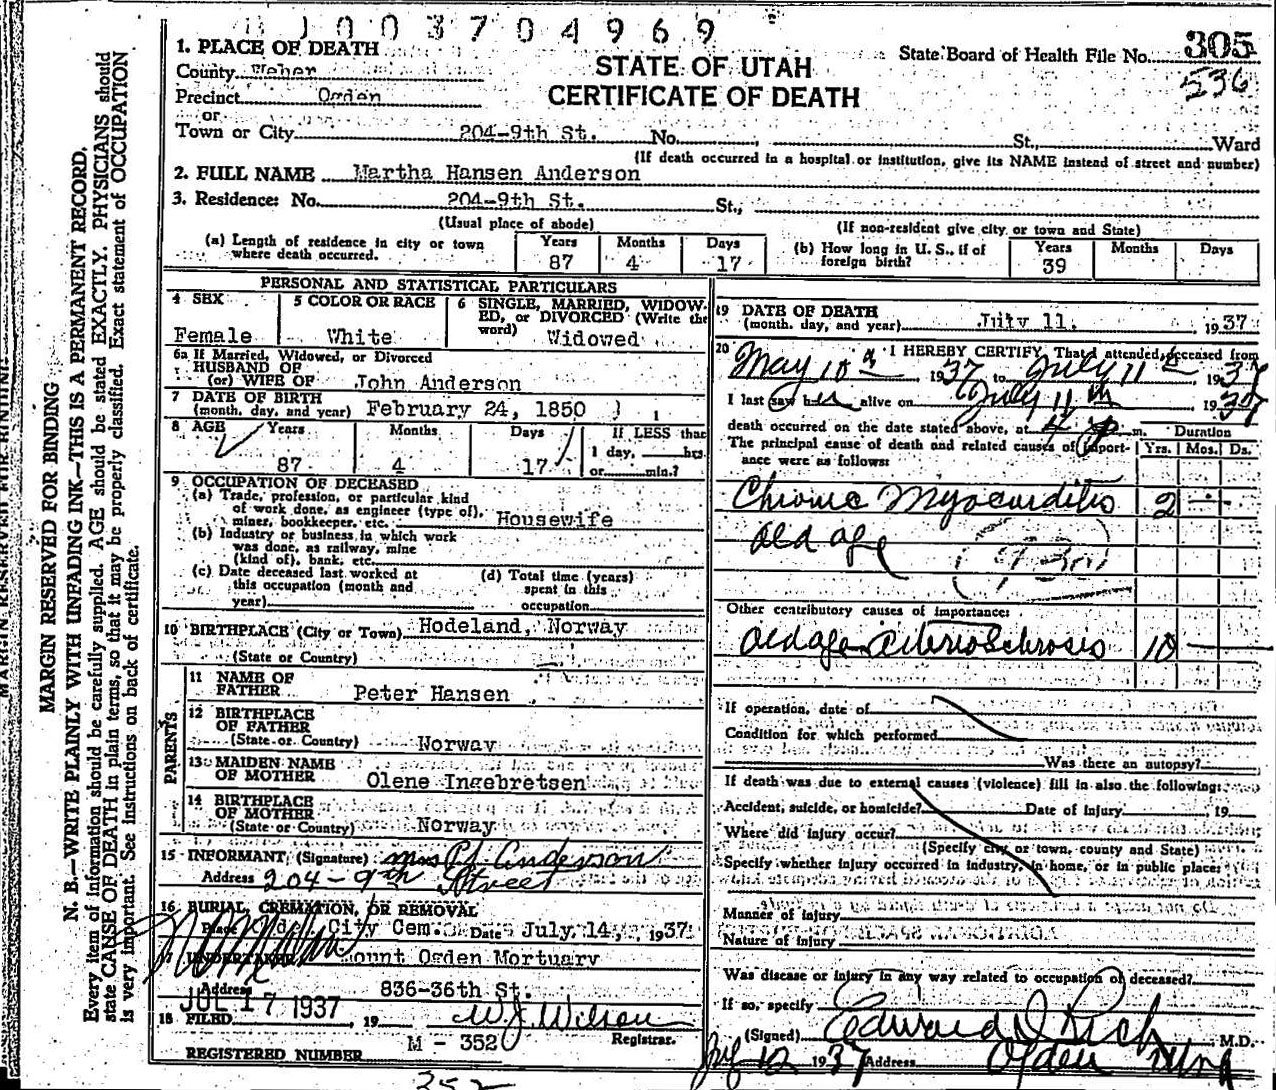 0 0 3 7 0 4 9 6 9
MARGIN RESERVED FOR BINDING
N. B.—WRITE PLAINLY WITH UNFADING INK—THIS IS A PERMANENT RECORD.
Every item of information should be carefully supplied. AGE should be stated EXACTLY. PHYSICIANS should
state CAUSE OF DEATH in plain terms, so that it may be properly classified. Exact statement of OCCUPATION
is very important. See instructions on back of certificate.
1. PLACE OF DEATH
County Weber
Precinct Ogden
or
Town or City 204-9th St. No. St., Ward
STATE OF UTAH
CERTIFICATE OF DEATH
State Board of Health File No. 305
536
(If death occurred in a hospital or institution, give its NAME instead of street and number)
2. FULL NAME Martha Hansen Anderson
3. Residence: No. 204-9th St. St.,
(Usual place of abode) (If non-resident give city or town and State)
(a) Length of residence in city or town where death occurred. Years 87 Months 4 Days 17
(b) How long in U. S., if of foreign birth? Years 39 Months Days
PERSONAL AND STATISTICAL PARTICULARS
4 SEX Female
5 COLOR OR RACE White
6 SINGLE, MARRIED, WIDOWED, or DIVORCED (Write the word) Widowed
6a If Married, Widowed, or Divorced
HUSBAND OF
(or) WIFE OF John Anderson
7 DATE OF BIRTH
(month, day, and year) February 24, 1850
8 AGE Years 87 Months 4 Days 17 If LESS than 1 day, hrs. or min.?
9 OCCUPATION OF DECEASED
(a) Trade, profession, or particular kind
of work done, as engineer (type of),
miner, bookkeeper, etc. Housewife
(b) Industry or business in which work
was done, as railway, mine
(kind of), bank, etc.
(c) Date deceased last worked at
this occupation (month and
year)
(d) Total time (years)
spent in this
occupation
10 BIRTHPLACE (City or Town) Hodeland, Norway
(State or Country)
PARENTS
11 NAME OF
FATHER Peter Hansen
12 BIRTHPLACE
OF FATHER
(State or Country) Norway
13 MAIDEN NAME
OF MOTHER Olene Ingebretsen
14 BIRTHPLACE
OF MOTHER
(State or Country) Norway
15 INFORMANT (Signature) Mrs P J Anderson
Address 204-9th Street
16 BURIAL, CREMATION, OR REMOVAL
Place City Cem. Date July 14, 1937
17 UNDERTAKER Mount Ogden Mortuary
Address 836-36th St.
JUL 17 1937
18 FILED , 19 W. J. Wilson
Registrar.
M - 352
REGISTERED NUMBER
352
19 DATE OF DEATH
(month, day, and year) July 11, 1937
20 I HEREBY CERTIFY, That I attended deceased from
May 10th 1937 to July 11th 1937
I last saw her alive on July 11th 1937
death occurred on the date stated above, at m. Duration
The principal cause of death and related causes of importance were as follows: Yrs. Mos. Ds.
Chronic Myocarditis 2
Old age
Other contributory causes of importance:
Old age arteriosclerosis 10
If operation, date of
Condition for which performed
Was there an autopsy?
If death was due to external causes (violence) fill in also the following:
Accident, suicide, or homicide? Date of Injury 19
Where did injury occur?
(Specify city or town, county and State)
Specify whether injury occurred in industry, in home, or in public place:
Manner of Injury
Nature of Injury
Was disease or injury in any way related to occupation of deceased?
If so, specify
(Signed) Edward I Rich M.D.
July 12 1937 Address Ogden Utah